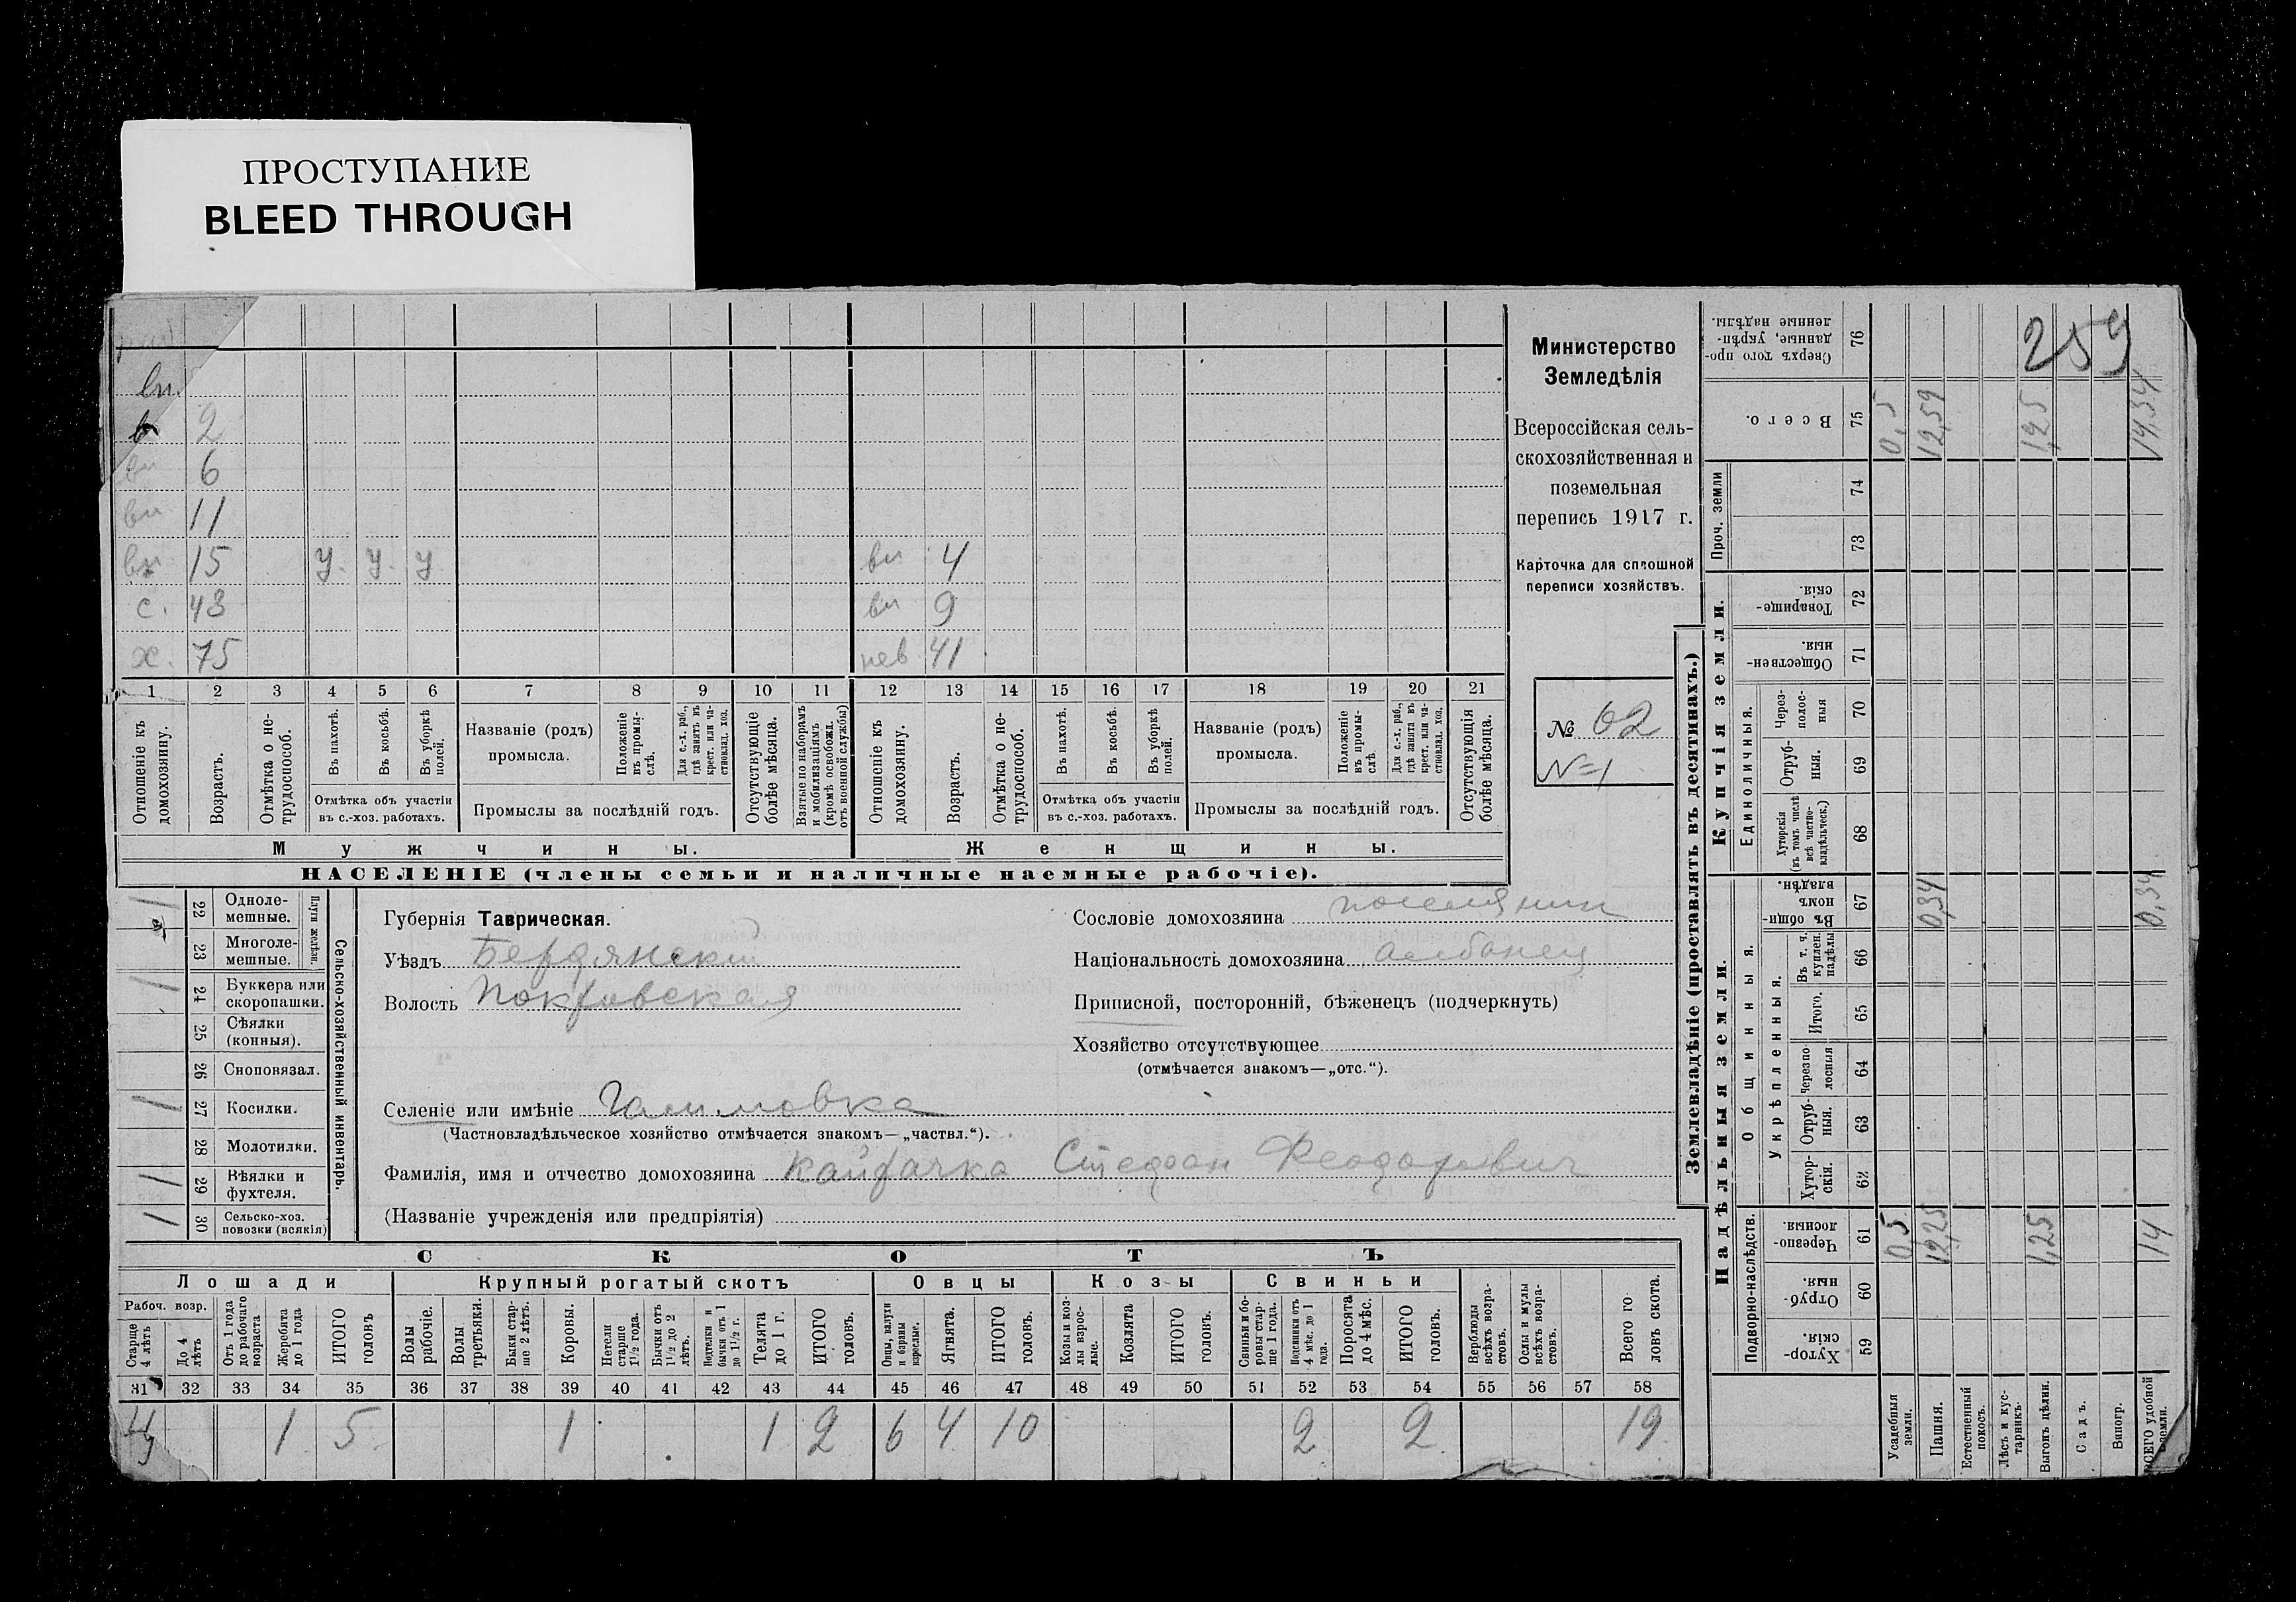 ПРОСТУПАНИЕ
BLEED THROUGH
вн.
в 2
вн 6
вн 11
вн 15 у. у. у вн 4
с. 43 вн 9
х. 75 нев 41
1 2 3 4 5 6 7 8 9 10 11 12 13 14 15 16 17 18 19 20 21
Отношеніе къ домохозяину.
Возрастъ.
Отмѣтка о не-трудоспособ.
Въ пахотѣ.
Въ косьбѣ.
Въ уборкѣ полей.
Отмѣтка объ участіи
въ с.-хоз. работахъ.
Названіе (родъ)
промысла.
Положеніе въ промы-слѣ.
Для с.-х. раб., гдѣ занятъ въ крест. или ча-стновлад. хоз.
Промыслы за послѣдній годъ.
Отсутствующіе болѣе мѣсяца.
Взятые по наборамъ и мобилизаціямъ (кромѣ освобожд. отъ военной службы)
Отношеніе къ домохозяину.
Возрастъ.
Отмѣтка о не-трудоспособ.
Въ пахотѣ.
Въ косьбѣ.
Въ уборкѣ полей.
Отмѣтка объ участіи
въ с.-хоз. работахъ.
Названіе (родъ)
промысла.
Положеніе въ промы-слѣ.
Для с.-х. раб., гдѣ занята въ крест. или ча-стновлад. хоз.
Промыслы за послѣдній годъ.
Отсутствующія болѣе мѣсяца.
Мужчины. Женщины.
НАСЕЛЕНІЕ (члены семьи и наличные наемные рабочіе).
Министерство
Земледѣлія
Всероссійская сель-
скохозяйственная и
поземельная
перепись 1917 г.
Карточка для сплошной
переписи хозяйствъ.
№ 62
№1
Сельско-хозяйственный инвентарь.
Плуги желѣзн.
1 22 Одноле-мешные.
23 Многоле-мешные.
1 24 Буккера или скоропашки.
25 Сѣялки (конныя).
26 Сноповязал.
1 27 Косилки.
28 Молотилки.
1 29 Вѣялки и фухтеля.
1 30 Сельско-хоз. повозки (всякія)
Губернія Таврическая.
Уѣздъ Бердянский
Волость Покровская
Сословіе домохозяина поселянин
Національность домохозяина албанец
Приписной, посторонній, бѣженецъ (подчеркнуть)
Хозяйство отсутствующее
(отмѣчается знакомъ—„отс.“).
Селеніе или имѣніе
(Частновладѣльческое хозяйство отмѣчается знакомъ—„частвл.“).
Фамилія, имя и отчество домохозяина Стефан Феодорович
(Названіе учрежденія или предпріятія)
СКОТЪ
Лошади Крупный рогатый скотъ Овцы Козы Свиньи
Рабоч. возр.
Старше 4 лѣтъ
До 4 лѣтъ
Отъ 1 года до рабочаго возраста
Жеребята до 1 года
ИТОГО головъ
Волы рабочіе.
Волы третьяки.
Быки стар-ше 2 лѣтъ.
Коровы.
Нетели старше 1½ года.
Бычки отъ 1½ до 2 лѣтъ.
Подтелки и бычки отъ 1 до 1½ г.
Телята до 1 г.
ИТОГО головъ.
Овцы, валухи и бараны взрослые.
Ягнята.
ИТОГО головъ.
Козы и коз-лы взрос-лые.
Козлята
ИТОГО головъ.
Свиньи и бо-ровы стар-ше 1 года.
Подсвинки отъ 4 мѣс. до 1 года.
Поросята до 4 мѣс.
ИТОГО головъ.
Верблюды всѣхъ возра-стовъ.
Ослы и мулы всѣхъ возра-стовъ.
Всего го-ловъ скота.
31 32 33 34 35 36 37 38 39 40 41 42 43 44 45 46 47 48 49 50 51 52 53 54 55 56 57 58
4 1 5 1 1 2 6 4 10 2 2 19
Землевладѣніе (проставлять въ десятинахъ.)
Сверхъ того про-данные, укрѣп-ленные надѣлы. 76
259
Всего. 75 0,5 12,59 1,25 14,34
Проч. земли 74
73
Купчія земли.
Товарище-скія. 72
Обществен-ныя. 71
Единоличныя.
Через-полос-ныя 70
Отруб-ныя. 69
Хуторскія (въ томъ числѣ всѣ частно-владѣльческ.) 68
Надѣльныя земли.
Общинныя.
Въ общин-номъ владѣн. 67 0,34 0,34
Укрѣпленныя.
Въ т. ч. куплен. надѣлы 66
Итого. 65
Черезпо-лосныя 64
Отруб-ныя. 63
Хутор-скія. 62
Подворно-наслѣдств.
Черезпо-лосныя. 61 0,5 12,25 1,25 14
Отруб-ныя. 60
Хутор-скія. 59
Усадебныя земли.
Пашня.
Естественный покосъ.
Лѣсъ и кус-тарникъ.
Выгонъ цѣлин.
Садъ.
Виногр.
ВСЕГО удобной земли.